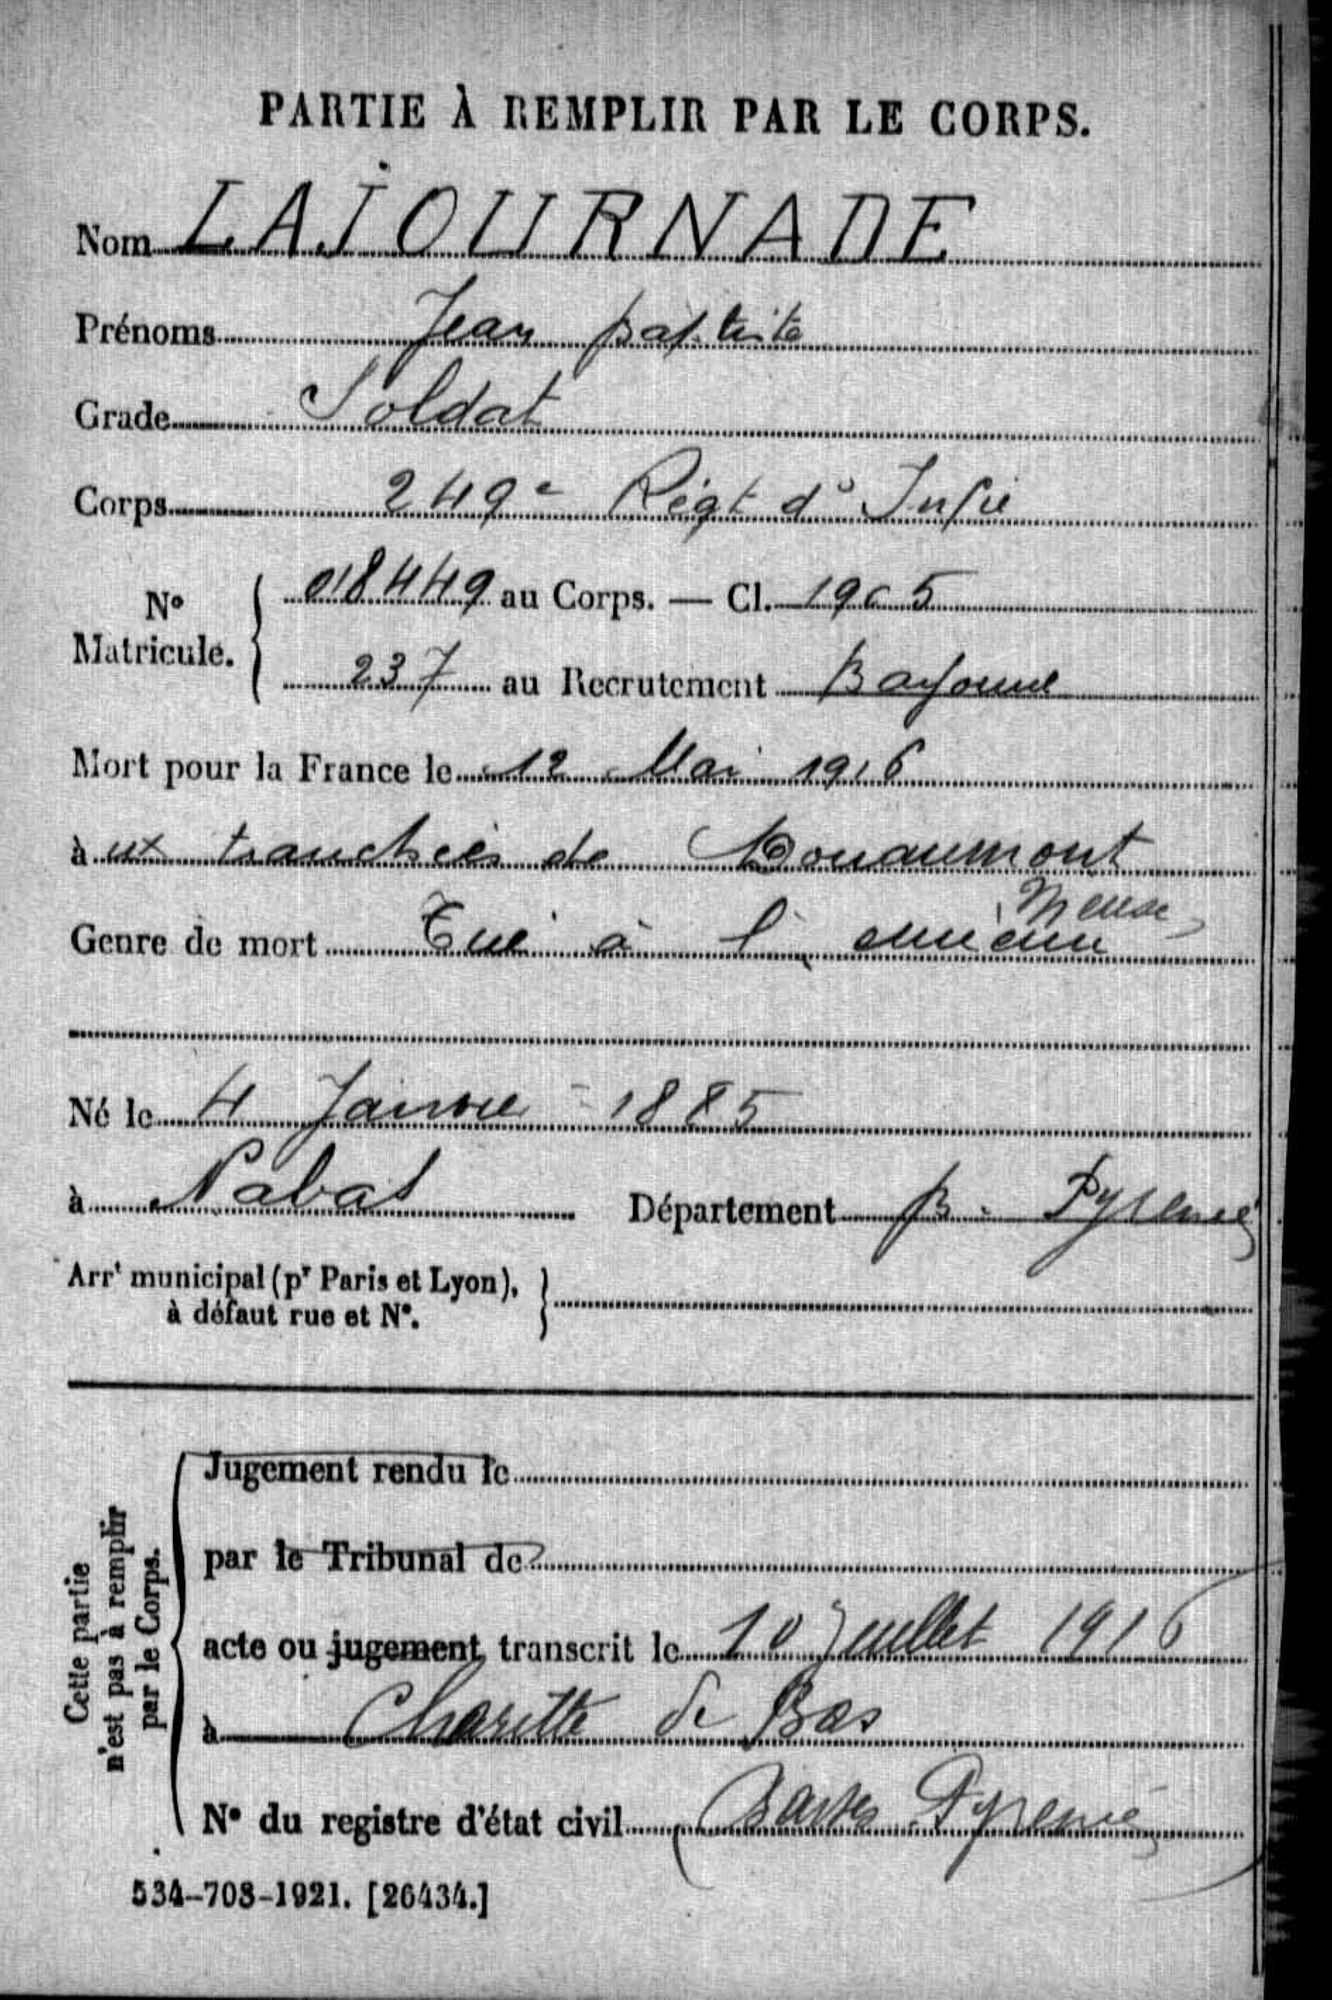 PARTIE À REMPLIR PAR LE CORPS.
Nom LAJOURNADE
Prénoms Jean Baptiste
Grade Soldat
Corps 249e Régt d' Infie
No Matricule. { 018449 au Corps. — Cl. 1905
237 au Recrutement Bayonne
Mort pour la France le 12 Mai 1916
à ux tranchées de Douaumont
Meuse
Genre de mort Tué à l' ennemi
Né le 4 Janvier 1885
à Nabas Département B. Pyrénées
Arrt municipal (pr Paris et Lyon), à défaut rue et No. }
Cette partie n'est pas à remplir par le Corps.
Jugement rendu le
par le Tribunal de
acte ou jugement transcrit le 10 Juillet 1916
à Charitte de Bas
No du registre d'état civil (Basses Pyrénées)
534-708-1921. [26434.]